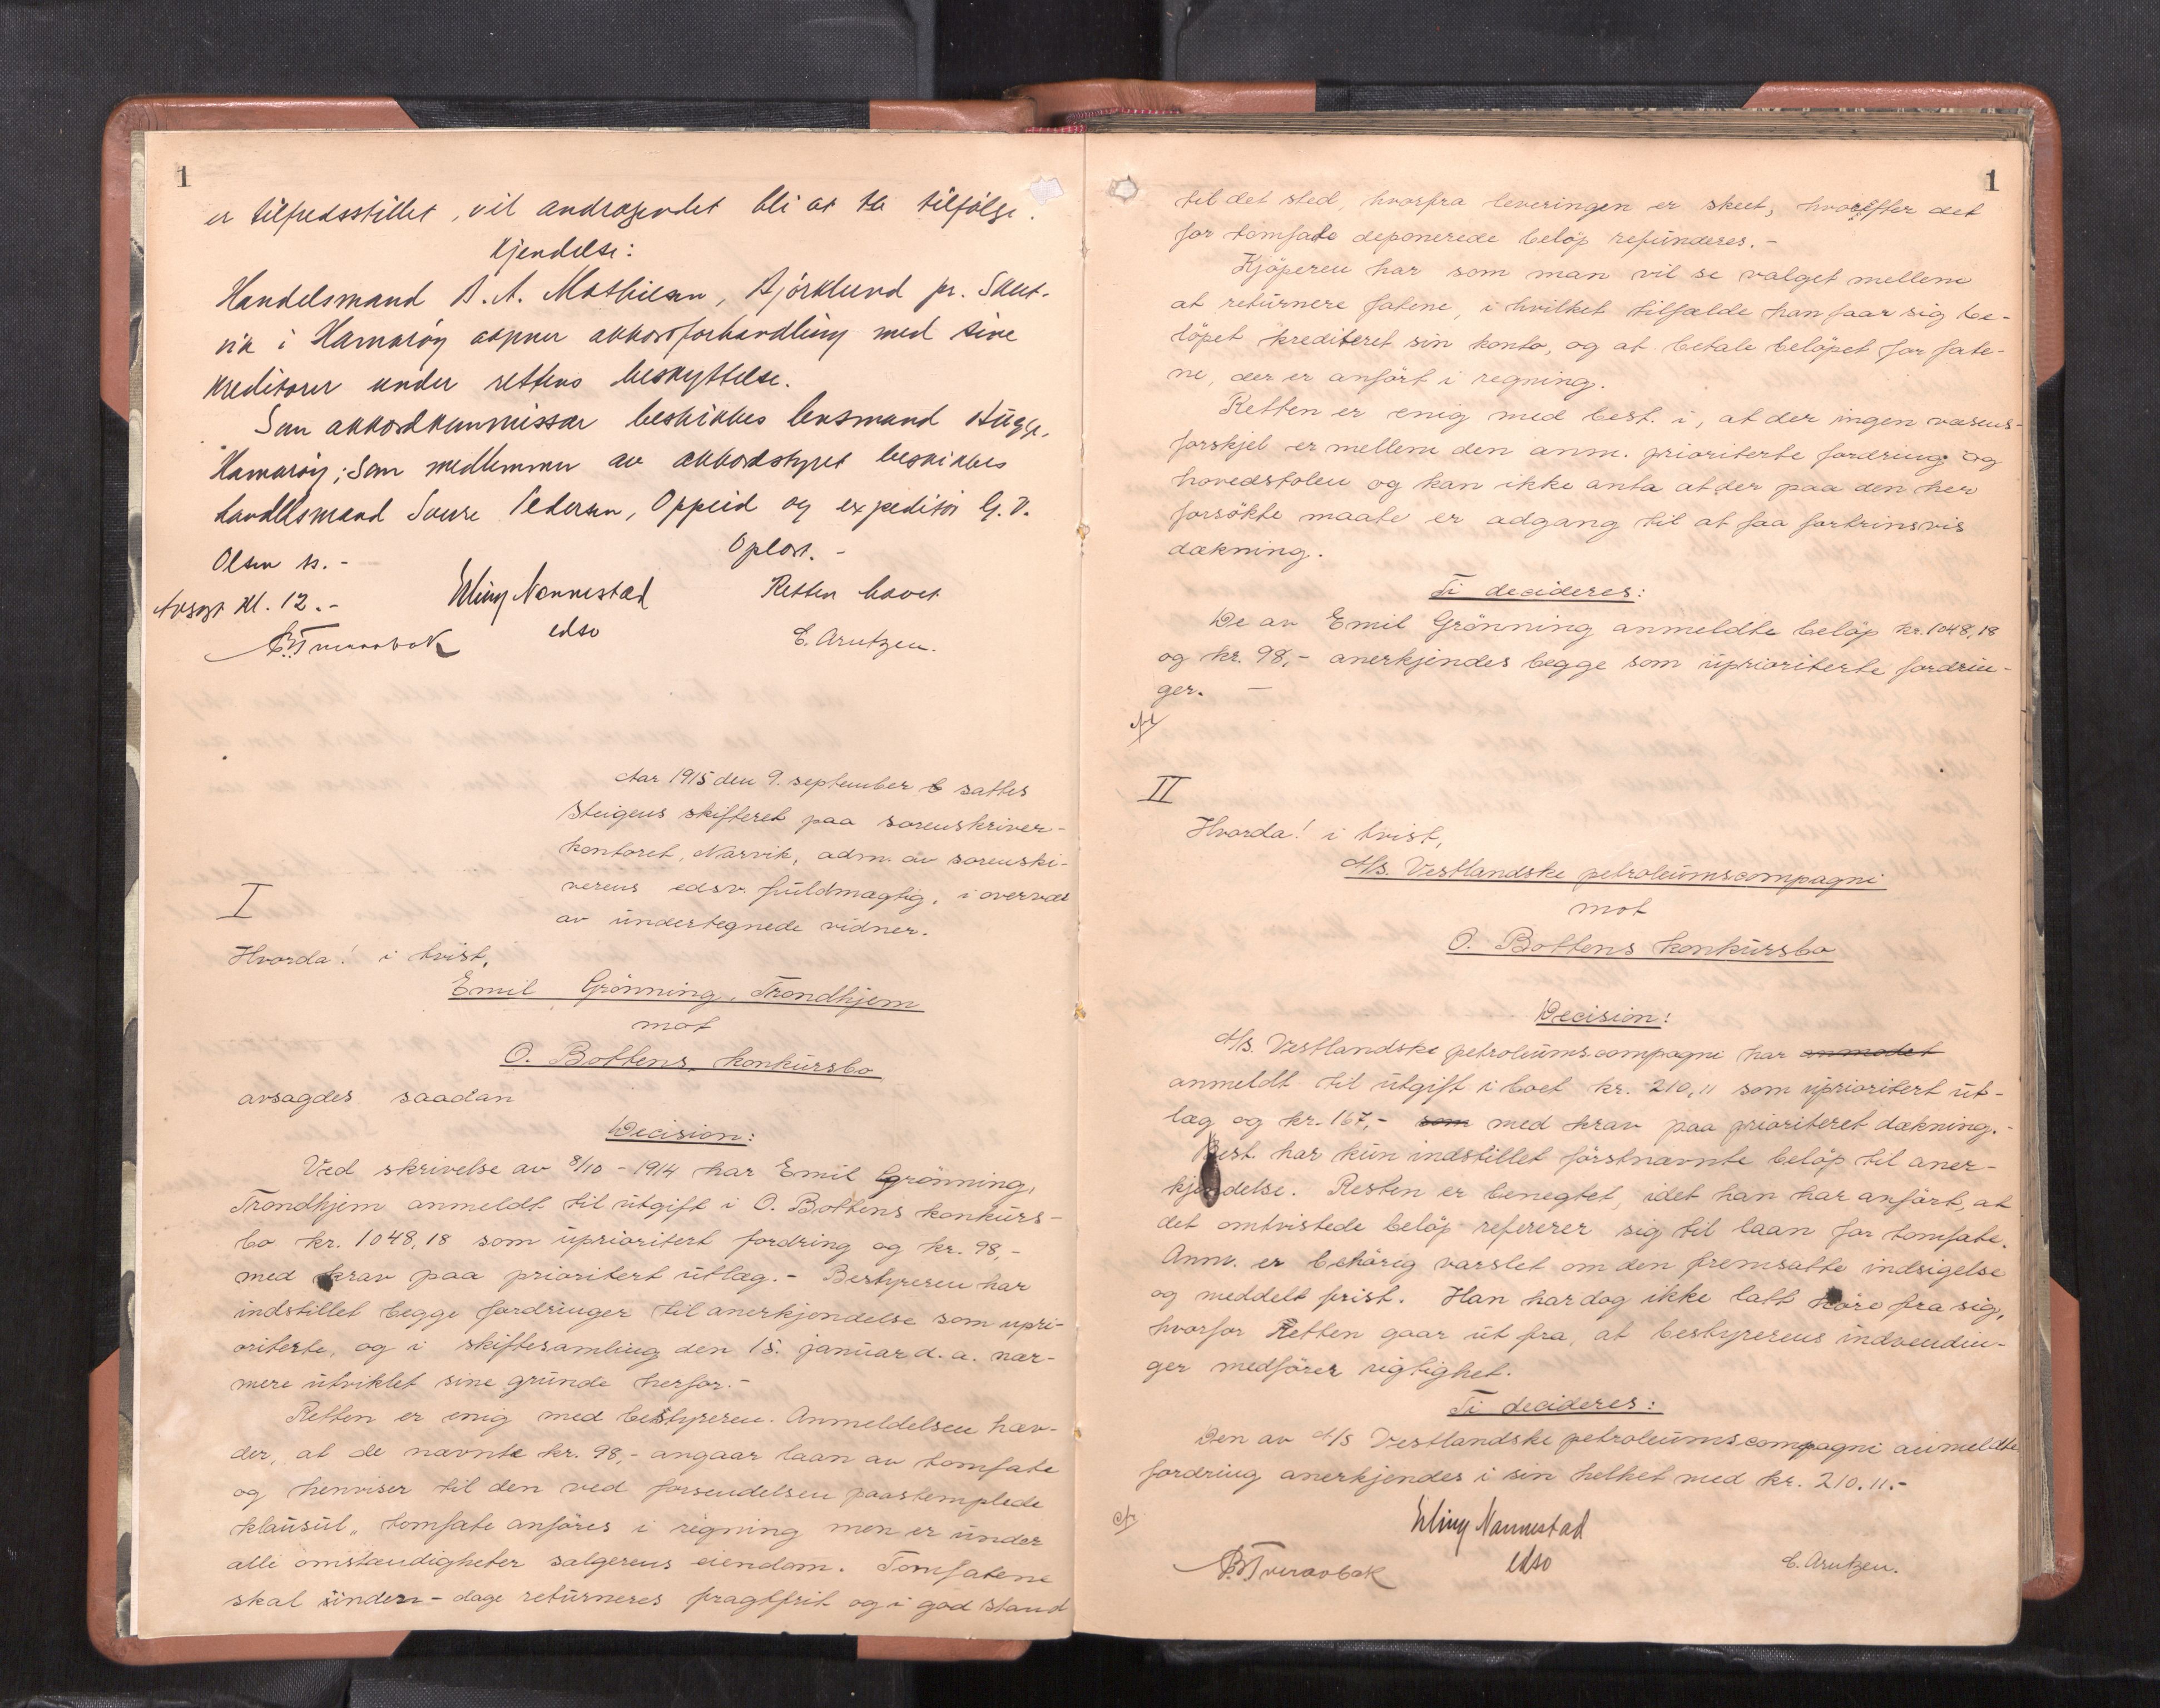 1
er tilfredsstillet, vil andragendet bli at ta tilfølge.
Kjendelse:
Handelsmand B. A. Mathisen, Bjørklund pr. Skut-
vik i Hamarøy aapner akkordforhandling med sine
kreditorer under rettens beskyttelse.
Som akkordkommissær beskikkes lensmand Hügge,
Hamarøy; som medlemmer av akkordstyret beskikkes
handelsmand Sverre Pedersen, Oppeid og expeditør G. D.
Olsen s.-
Oplæst. -
Avsagt kl. 12.-
Erling Nannestad
Retten hævet
edso
B. Tveraabak
E. Arntzen.
Aar 1915 den 9. september b sattes
Steigens skifteret paa sorenskriver-
kontoret, Narvik, adm. av sorenskri-
verens edsv. fuldmægtig, i overvær
av undertegnede vidner.
I
Hvorda! i tvist,
Emil Grönning, Trondhjem
mot
O. Bottens konkursbo
avsagdes saadan
Decision:
Ved skrivelse av 8/10 - 1914 har Emil Grönning,
Trondhjem anmeldt til utgift i O. Bottens konkurs-
bo kr. 1048,18 som uprioritert fordring og kr. 98,-
med krav paa prioritert utlæg.- Bestyreren har
indstillet begge fordringer til anerkjendelse som upri-
oriterte, og i skiftesamling den 15. januar d. a. nær-
mere utviklet sine grunde herfor.-
Retten er enig med bestyreren. Anmeldelsen hæv-
der, at de nævnte kr. 98,- angaar laan av tomfate
og henviser til den ved forsendelsen paastemplede
klausul „ tomfate anføres i regning men er under
alle omstændigheter sælgerens eiendom. Tomfatene
skal inden - dage returneres fragtfrit og i god stand
1
til det sted, hvorfra leveringen er skeet, hvorefter det
for tomfate deponerede beløp refunderes.-
Kjøperen har som man vil se valget mellem
at returnere fatene, i hvilket tilfælde han faar sig be-
løpet krediteret sin konto, og at betale beløpet for fate-
ne, der er anført i regning.
Retten er enig med best. i, at der ingen væsens-
forskjel er mellem den anm. prioriterte fordring og
hovedstolen og kan ikke anta at der paa den her
forsökte maate er adgang til at faa fortrinsvis
dækning.
Ti decideres:
De av Emil Grönning anmeldte beløp kr. 1048,18
og kr. 98,- anerkjendes begge som uprioriterte fordrin-
ger. -
II
Hvorda! i tvist,
A/S. Vestlandske petroleumscompagni
mot
O. Bottens konkursbo
Decision:
A/S. Vestlandske petroleumscompagni har anmodet
anmeldt til utgift i boet kr. 210,11 som uprioritert ut-
læg og kr. 167,- som med krav paa prioriteret dækning.-
Best. har kun indstillet förstnævnte beløp til aner-
kjendelse. Resten er benegtet, idet han har anført, at
det omtvistede beløp refererer sig til laan for tomfate.
Anm. er behörig varslet om den fremsatte indsigelse
og meddelt frist. Han har dog ikke latt höre fra sig,
hvorfor Retten gaar ut fra, at bestyrerens indvendin-
ger medfører rigtighet.
Ti decideres:
Den av A/S Vestlandske petroleumscompagni anmeldte
fordring anerkjendes i sin helhet med kr. 210.11.-
Erling Nannestad
edso
B. Tveraabak
E. Arntzen.